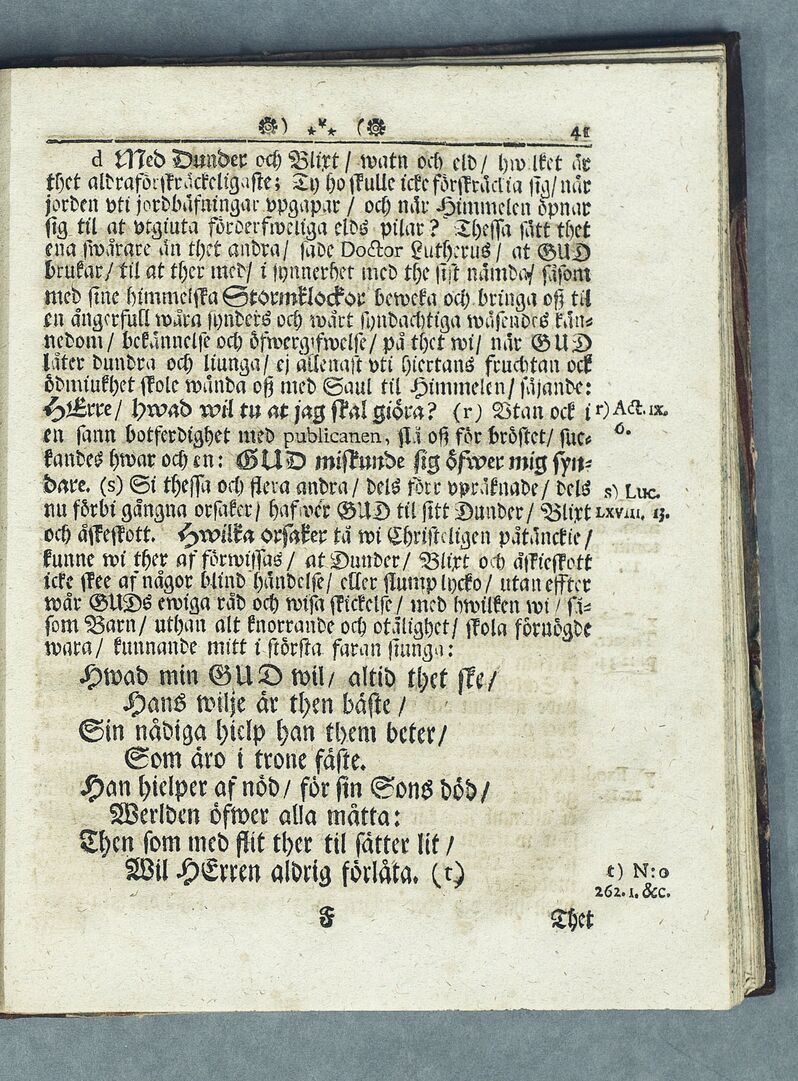 ❁) ⁎*⁎ (❁ 41
d Med Dunder och Blixt / watn och eld / hwilket är
thet aldraförskräckeligaste; Ty ho skulle icke förskräckia sig / när
jorden vti jordbäfningar vpgapar / och när Himmelen öpnar
sig til at vtgiuta förderfweliga elds pilar? Thessa sätt thet
ena swårare än thet andra / sade Doctor Lutherus / at GUD
brukar / til at ther med / i synnerhet med the sist nämda / såsom
med sine himmelska Stormklockor beweka och bringa oß til
en ångerfull wåra synders och wårt syndachtiga wäsendes kän-
nedom / bekännelse och öfwergifwelse / på thet wi / når GUD
låter dundra och liunga / ej allenast vti hiertans fruchtan ock
ödmiukhet skole wånda oß med Saul til Himmelen / säjande:
HErre / hwad wil tu at jag skal giöra? (r) Vtan ock i r) Act. IX.
6.
en sann botferdighet med publicanen, slå oß för bröstet / suc-
kandes hwar och en: GUD miskunde sig öfwer mig syn-
dare. (s) Si thessa och flera andra / dels förr vpräknade / dels s) Luc.
nu förbi gångna orsaker / hafwer GUD til sitt Dunder / Blixt LXVIII. 13.
och åskeskott. Hwilka orsaker tå wi Christeligen påtänckie /
kunne wi ther af förwissas / at Dunder / Blixt och åskieskott
icke skee af någor blind håndelse / eller slump lycko / utan effter
wår GUDs ewiga råd och wisa skickelse / med hwilken wi / så-
som Barn / uthan alt knorrande och otålighet / skola förnögde
wara / kunnande mitt i största faran siunga:
Hwad min GUD wil / altid thet ske /
Hans wilje är then bäste /
Sin nådiga hielp han them beter /
Som äro i trone fäste.
Han hielper af nöd / för sin Sons död /
Werlden öfwer alla måtta:
Then som med flit ther til sätter lit /
Wil HErren aldrig förlåta. (t) t) N:o
262. 1. &c.
F Thet